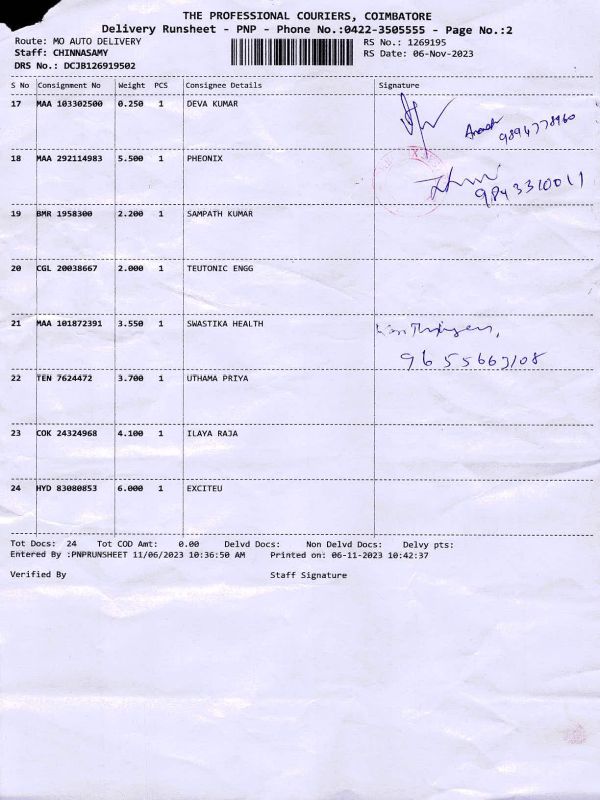 THE PROFESSIONAL COURIERS, COIMBATORE
Delivery Runsheet - PNP - Phone No.:0422-3505555 - Page No.:2
Route: MO AUTO DELIVERY RS No.: 1269195
Staff: CHINNASAMY RS Date: 06-Nov-2023
DRS No.: DCJB126919502
S No Consignment No Weight PCS Consignee Details Signature
17 MAA 103302500 0.250 1 DEVA KUMAR
9894778960
18 MAA 292114983 5.500 1 PHEONIX
9843310011
19 BMR 1958300 2.200 1 SAMPATH KUMAR
20 CGL 20038667 2.000 1 TEUTONIC ENGG
21 MAA 101872391 3.550 1 SWASTIKA HEALTH
9655663108
22 TEN 7624472 3.700 1 UTHAMA PRIYA
23 COK 24324968 4.100 1 ILAYA RAJA
24 HYD 83080853 6.000 1 EXCITEU
Tot Docs: 24 Tot COD Amt: 0.00 Delvd Docs: Non Delvd Docs: Delvy pts:
Entered By :PNPRUNSHEET 11/06/2023 10:36:50 AM Printed on: 06-11-2023 10:42:37
Verified By Staff Signature